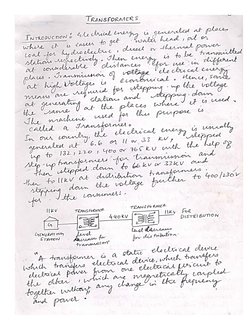 TRANSFORMERS
INTRODUCTION: Electrical energy is generated at places
where it is easier to get water head, oil or
coal for hydroelectric, diesel or thermal power
station respectively. Then energy is to be transmitted
at considerable distance for use in different
place. Transmission of voltage electric energy
at high voltage is economical. Hence, some
means are required for stepping up the voltage
at generating station and stepping down
the same at the places where it is used.
The machine used for this purpose is
called a Transformer.
In our country the electrical energy is usually
generated at 6.6 or 11 or 33 kV, stepped
up to 132, 220, 400 or 765 kV with the help of
step up transformers for transmission and
then stepped down to 66 kV or 33 kV and
to 11 kV at distribution transformers.
then stepping down the voltage further to 400/230V
for the consumers.
11 KV TRANSFORMER TRANSFORMER
400 KV 11 KV FOR DISTRIBUTION
GENERATING STATION
used for transmission
used for distribution
"A transformer is a static electrical device
which transfers electrical device, which transfers
electrical power from one electrical circuit to
the other which are magnetically coupled
together without any change in the frequency
and power."